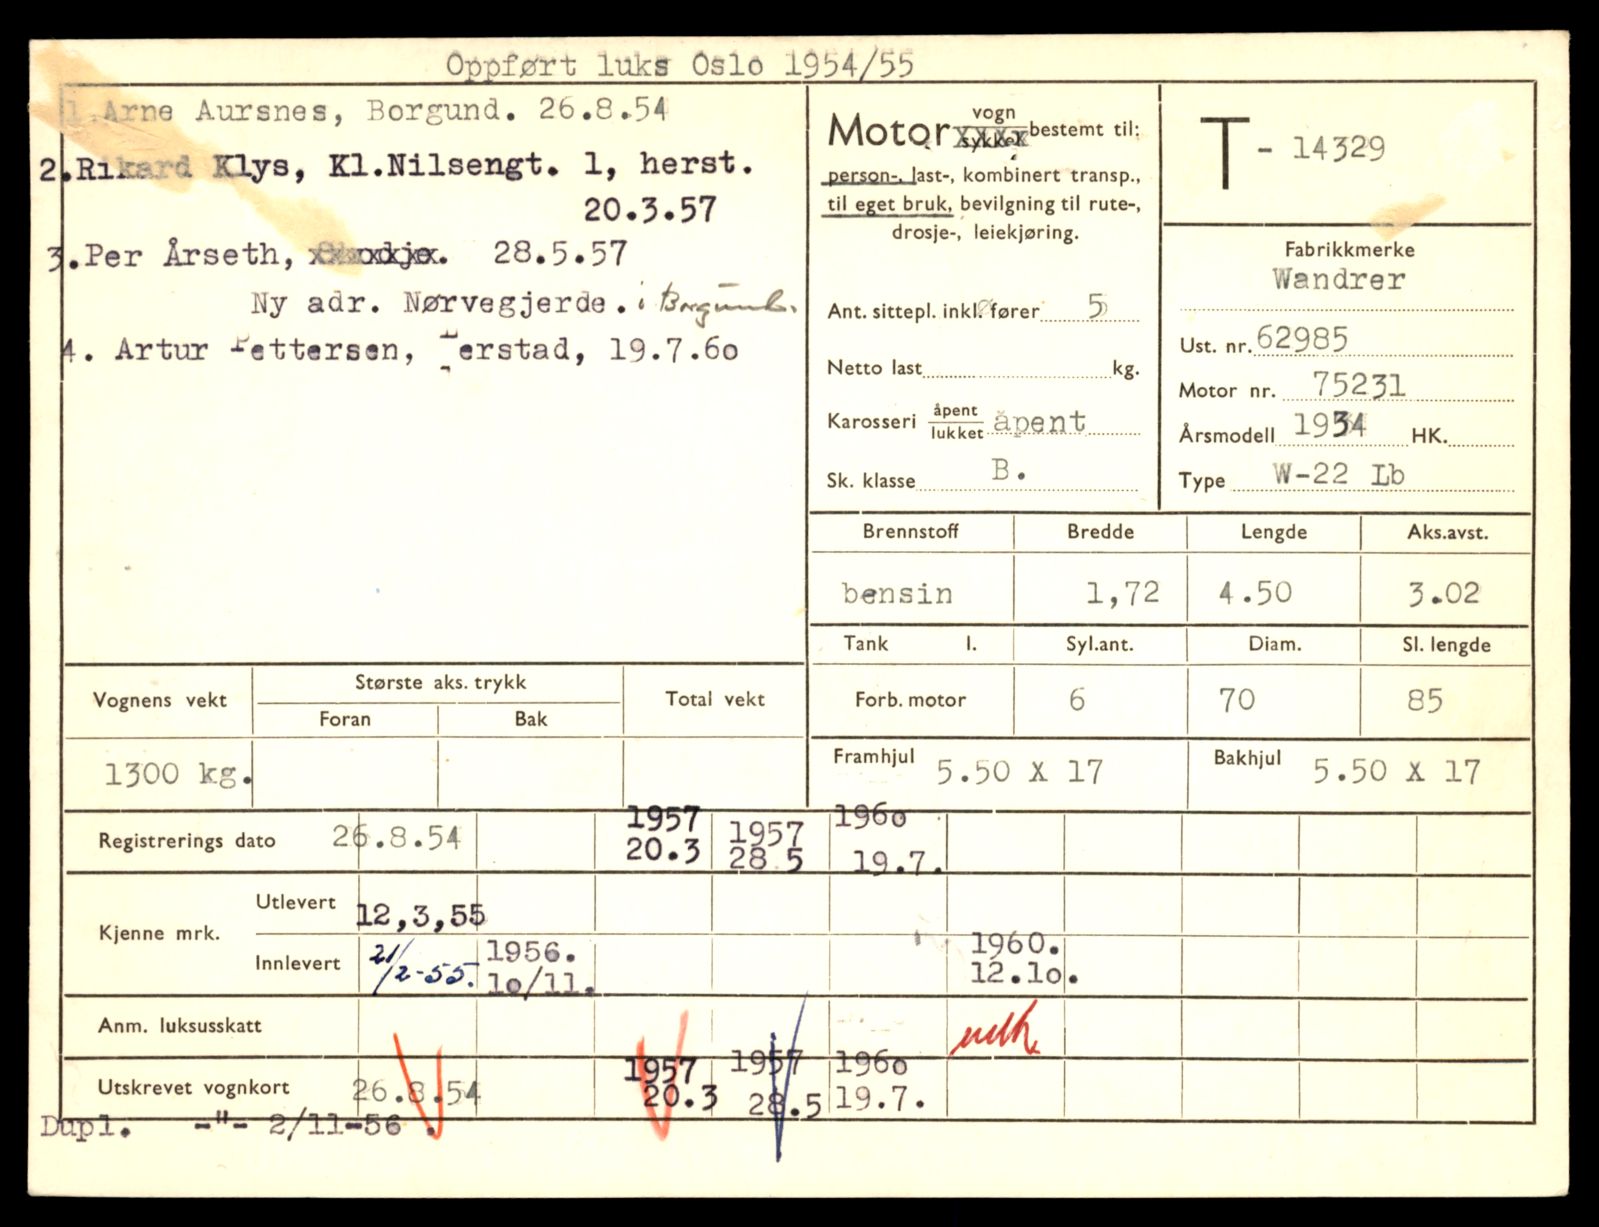 Oppført luks Oslo 1954/55
1.Arne Aursnes, Borgund. 26.8.54
2.Rikard Klys, Kl.Nilsengt. 1, herst.
20.3.57
3.Per Årseth, 28.5.57
Ny adr. Nørvegjerde. i Borgund.
4. Artur Pettersen, 19.7.6o
Motor vogn sykkel bestemt til:
person-, last-, kombinert transp.,
til eget bruk, bevilgning til rute-,
drosje-, leiekjøring.
Ant. sittepl. inkl. fører 5
Netto last kg.
Karosseri åpent lukket åpent
Sk. klasse B.
T - 14329
Fabrikkmerke
Wandrer
Ust. nr. 62985
Motor nr. 75231
Årsmodell 1934 HK.
Type W-22 Lb
Brennstoff Bredde Lengde Aks.avst.
bensin 1,72 4.50 3.02
Tank l. Syl.ant. Diam. Sl. lengde
Forb. motor 6 70 85
Framhjul 5.50 X 17 Bakhjul 5.50 X 17
Vognens vekt Største aks. trykk Total vekt
Foran Bak
1300 kg.
Registrerings dato 26.8.54 1957 20.3 1957 28 5 196o 19.7.
Kjenne mrk. Utlevert 12,3,55
Innlevert 21/2-55. 1956. 1o/11. 1960. 12.1o.
Anm. luksusskatt
Utskrevet vognkort 26.8.54 1957 20.3 1957 28.5 196o 19.7.
Dupl. -"- 2/11-56 .